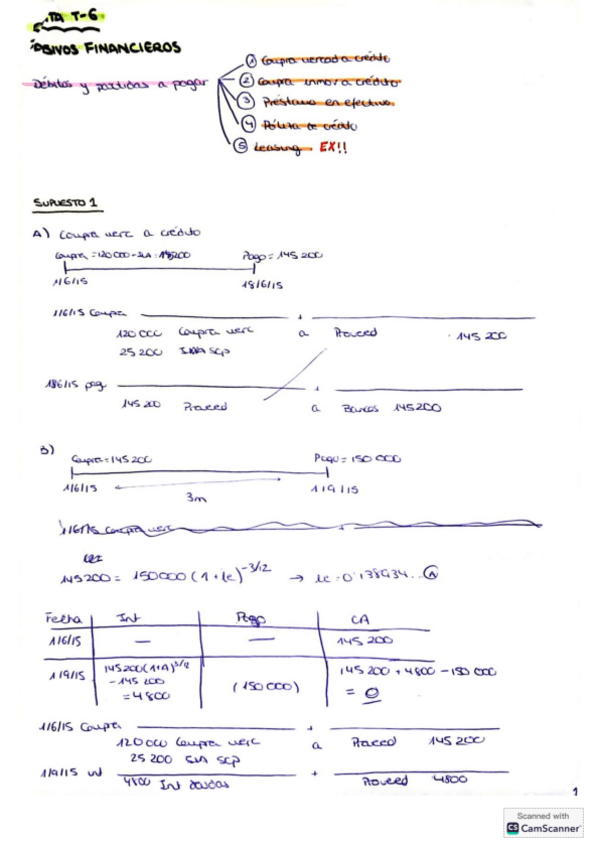 TA T-6
PASIVOS FINANCIEROS
Débitos y partidas a pagar
① Compra mercad a crédito
② Compra inmov a crédito
③ Préstamo en efectivo
④ Póliza de crédito
⑤ Leasing. EX!!
SUPUESTO 1
A) Compra merc a crédito
Pago = 145 200
1/6/15
18/6/15
1/6/15 Compra
120 000 Compra merc a Proveed 145 200
25 200 IVA SOP
18/6/15 pag
145 200 Proveed a Bancos 145 200
B)
Compra = 145 200
Pago = 150 000
1/6/15
1/9/15
3m
1/6/15 Compra merc
145 200 = 150000 (1+ie)^-3/12 → ie = 0'138934... Ⓐ
Fecha Int Pago CA
1/6/15 — — 145 200
1/9/15 145 200 (1+A)^3/12 - 145 200 = 4800 (150 000) 145 200 + 4800 - 150 000 = 0
1/6/15 Compra
120 000 Compra merc a Proveed 145 200
25 200 IVA SOP
1/9/15 int
4800 Int deudas Proveed 4800
1
Scanned with
CS CamScanner